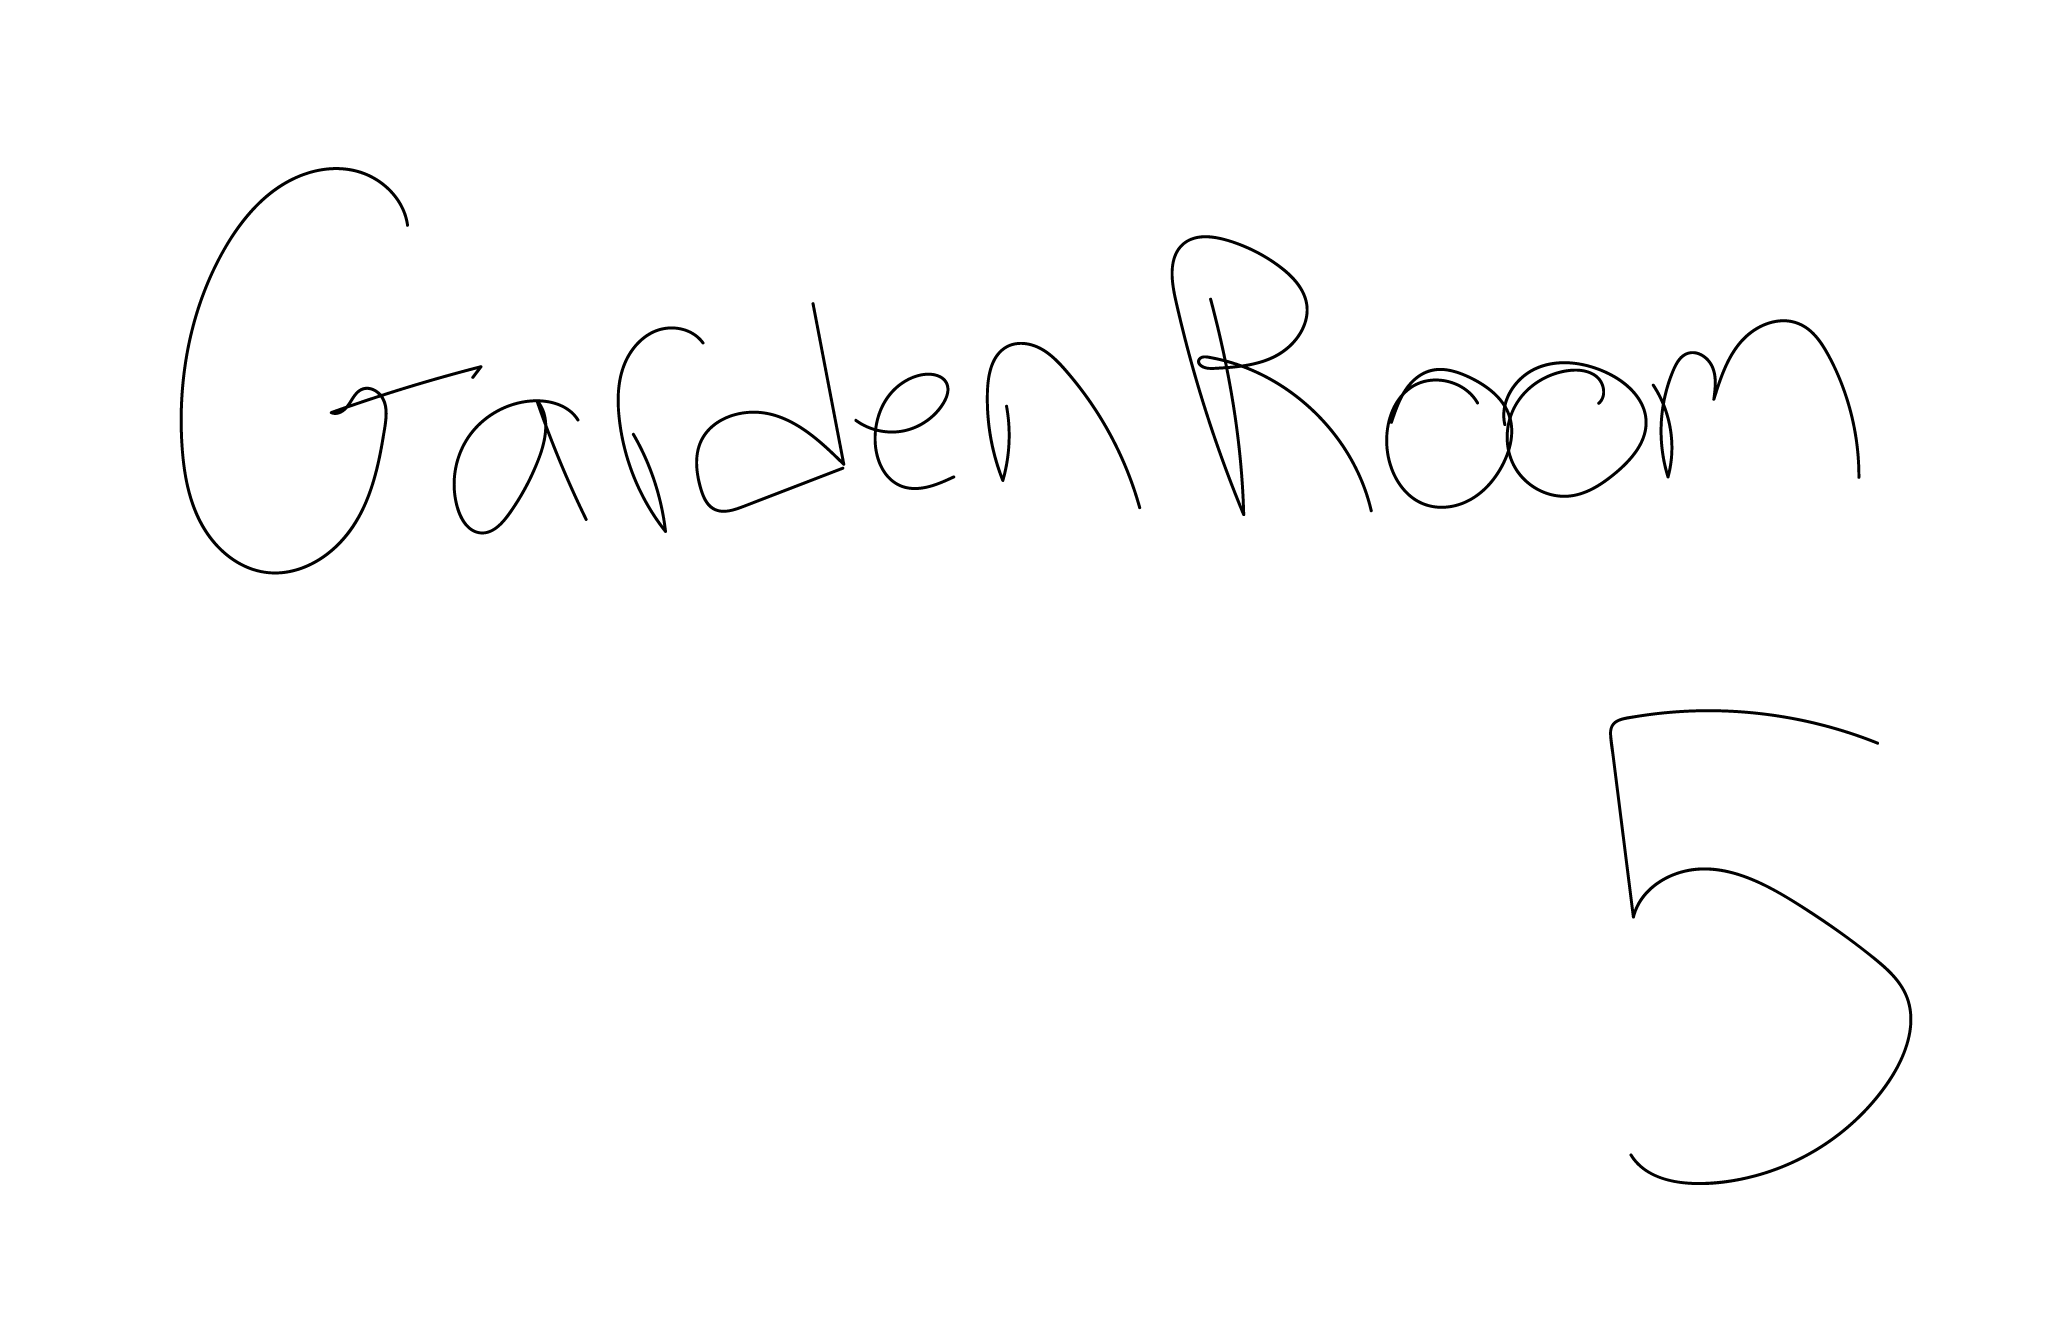 Garden Room
5